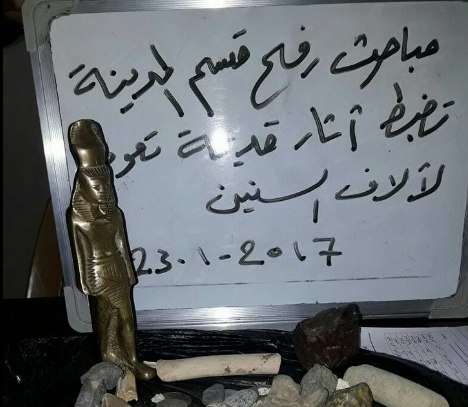 مباحث رفح قسم المدينة
تضبط آثار قديمة تعود
لآلاف السنين
23-1-2017